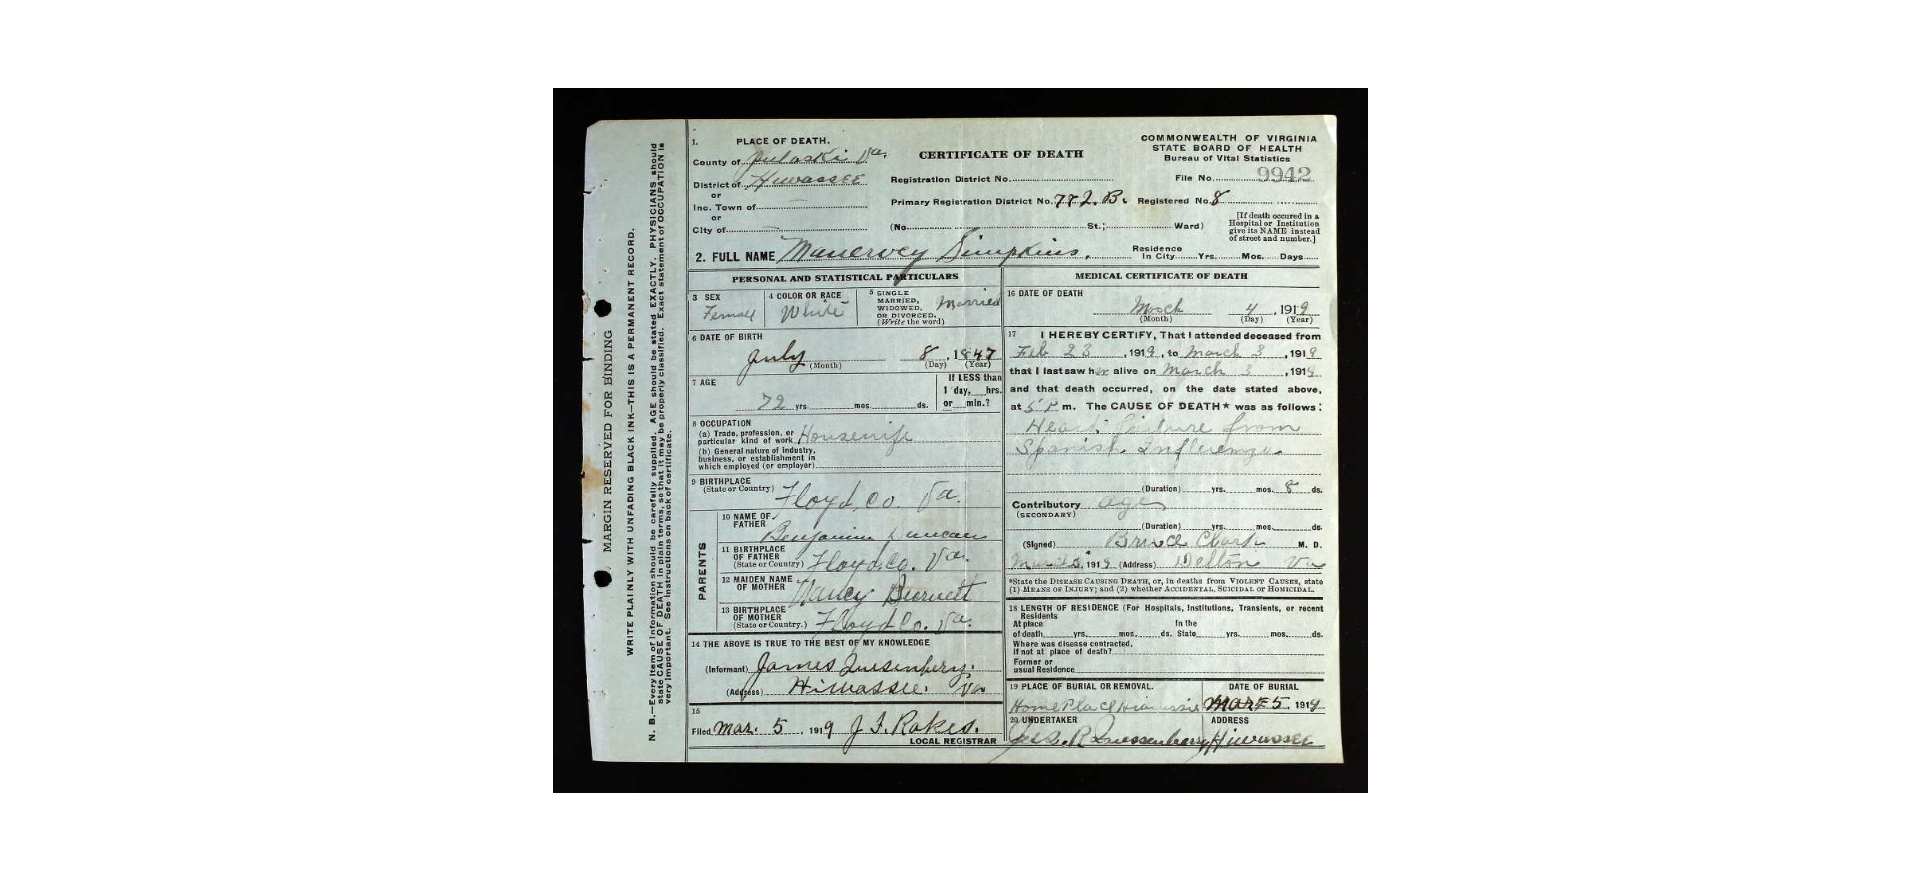 MARGIN RESERVED FOR BINDING
WRITE PLAINLY WITH UNFADING BLACK INK—THIS IS A PERMANENT RECORD.
N. B.—Every item of information should be carefully supplied. AGE should be stated EXACTLY. PHYSICIANS should
state CAUSE OF DEATH in plain terms, so that it may be properly classified. Exact statement of OCCUPATION is
very important. See instructions on back of certificate.
1. PLACE OF DEATH.
County of Pulaski Va.
District of Hiwassee
or
Inc. Town of
or
City of
CERTIFICATE OF DEATH
COMMONWEALTH OF VIRGINIA
STATE BOARD OF HEALTH
Bureau of Vital Statistics
Registration District No.
File No. 9942
Primary Registration District No. 772.B. Registered No. 8
(No. St.; Ward)
[If death occured in a
Hospital or Institution
give its NAME instead
of street and number.]
2. FULL NAME Manervey Simpkins.
Residence
In City Yrs. Mos. Days
PERSONAL AND STATISTICAL PARTICULARS
3 SEX
Femal
4 COLOR OR RACE
White
5 SINGLE
MARRIED,
WIDOWED,
OR DIVORCED.
(Write the word)
Married
6 DATE OF BIRTH
July 8, 1847
(Month) (Day) (Year)
7 AGE
72 yrs. mos. ds.
If LESS than
1 day, hrs.
or min.?
8 OCCUPATION
(a) Trade, profession, or
particular kind of work Housewife
(b) General nature of industry,
business, or establishment in
which employed (or employer)
9 BIRTHPLACE
(State or Country) Floyd, Co. Va.
PARENTS
10 NAME OF
FATHER
Benjamin Duncan
11 BIRTHPLACE
OF FATHER
(State or Country) Floyd, Co. Va.
12 MAIDEN NAME
OF MOTHER Nancy Burnett
13 BIRTHPLACE
OF MOTHER
(State or Country.) Floyd Co. Va.
14 THE ABOVE IS TRUE TO THE BEST OF MY KNOWLEDGE
(Informant) James Quesinbery.
(Address) Hiwassie. Va
15
Filed Mar. 5, 1919 J. F. Rakes.
LOCAL REGISTRAR
MEDICAL CERTIFICATE OF DEATH
16 DATE OF DEATH
4, 1919
(Month) (Day) (Year)
17 I HEREBY CERTIFY, That I attended deceased from
Feb 23, 1919, to March 3, 1919
that I last saw her alive on March 3, 1919
and that death occurred, on the date stated above,
at 5 P m. The CAUSE OF DEATH* was as follows:
Heart failure from
Spanish Influenza
(Duration) yrs. mos. 8 ds.
Contributory age
(SECONDARY)
(Duration) yrs. mos. ds.
(Signed) Bruce Clark M. D.
1919 (Address) Delton Va
*State the DISEASE CAUSING DEATH, or, in deaths from VIOLENT CAUSES, state
(1) MEANS OF INJURY; and (2) whether ACCIDENTAL, SUICIDAL or HOMICIDAL.
18 LENGTH OF RESIDENCE (For Hospitals, Institutions, Transients, or recent
Residents
At place In the
of death yrs. mos. ds. State yrs. mos. ds.
Where was disease contracted.
If not at place of death?
Former or
usual Residence
19 PLACE OF BURIAL OR REMOVAL.
Home Place Hiwassie
DATE OF BURIAL
Mar 5. 1919
20 UNDERTAKER
Jas. R. Quessenberry
ADDRESS
Hiwassee